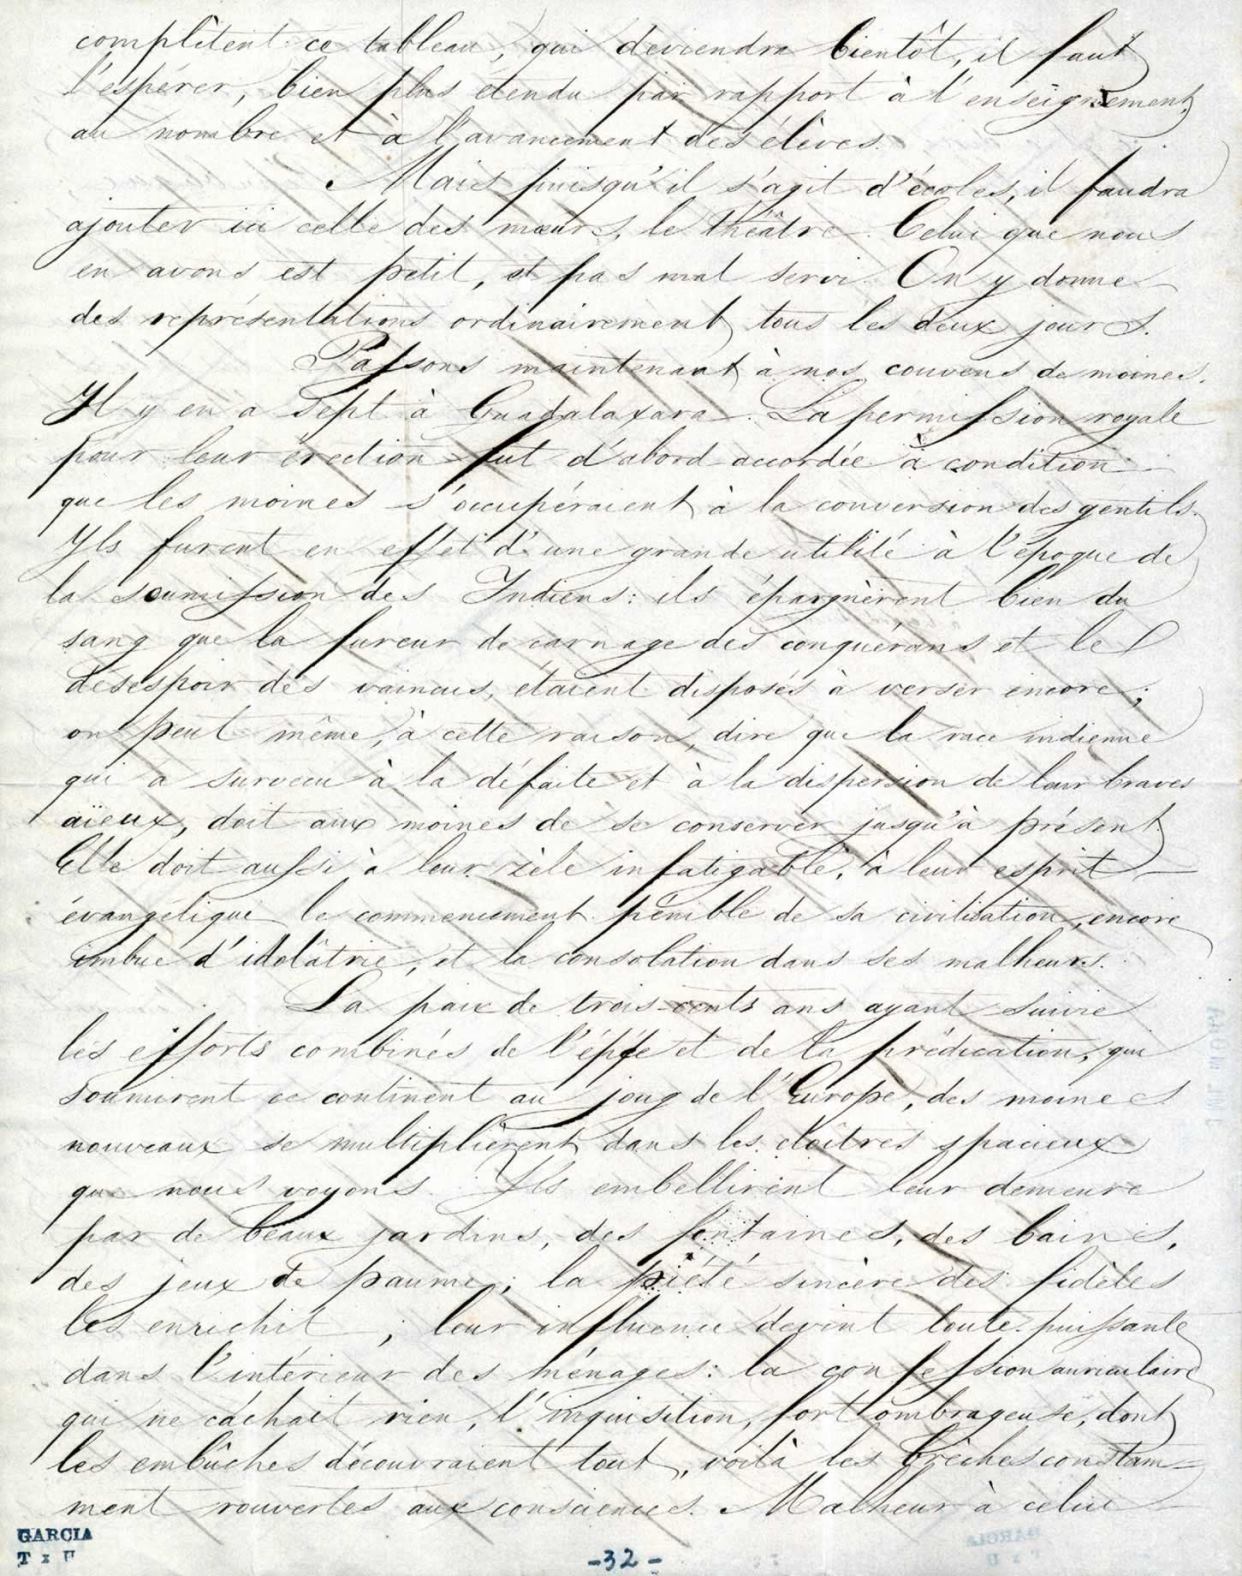 complètent ce tableau, qui deviendra bientôt, il faut
l'esperer, bien plus étendu par rapport à l'enseignement,
au nombre et à l'avancement des élèves.
Mais puisqu'il s'agit d'écoles, il faudra
ajouter ici celle des mœurs, le théâtre. Celui que nous
en avons est petit, et pas mal servi. On y donne
des représentations ordinairement tous les deux jours.
Passons maintenant à nos couvens de moines.
Il y en a sept à Guadalaxara. La permission royale
pour leur érection fut d'abord accordée à condition
que les moines s'occupéraient à la conversion des gentils.
Ils furent en effet d'une grande utilité à l'époque de
la soumission des Indiens: ils épargnèrent bien du
sang que la fureur de carnage des conquérans et le
désespoir des vaincus, étaient disposés à verser encore;
on peut même, à cette raison, dire que la race indienne
qui a survecu à la défaite et à la dispersion de leur braves
aïeux, doit aux moines de se conserver jusqu'à présent.
Elle doit aussi à leur zèle infatigable, à leur esprit
évangélique le commencement pénible de sa civilisation, encore
imbue d'idolâtrie, et la consolation dans ses malheurs.
La paix de trois cents ans ayant suivie
les efforts combinés de l'épée et de la prédication, qui
soumirent ce continent au joug de l'Europe, des moines
nouveaux se multiplièrent dans les cloîtres spacieux
que nous voyons. Ils embellirent leur demeure
par de beaux jardins, des fontaines, des bains,
des jeux de paume; la piété sincère des fidèles
les enrichit; leur influence devint toute-puissante
dans l'intérieur des ménages: la confession auriculaire
qui ne cachait rien, l'inquisition, fort ombrageuse, dont
les embûches découvraient tout, voilà les brèches constam-
ment rouvertes aux consciences. Malheur à celui
GARCIA
-32-